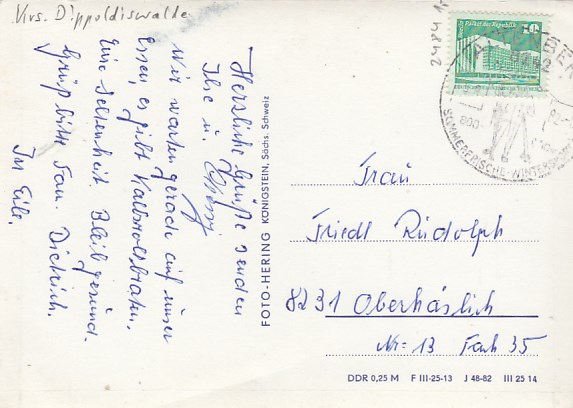 Krs. Dippoldiswalde
Herzliche Grüße senden
Ilse u.
Wir warten gerade auf unser
Essen, es gibt Kalbsrollbraten.
Eine Seltenheit. Bleib gesund.
Grüß bitte Fam. Dietrich.
In Eile.
FOTO-HERING KÖNIGSTEIN, Sächs. Schweiz
10
Berlin, Palast der Republik
ALTENBERG
8242
800-
SOMMERFRISCHE-WINTERSPORT
Frau
Friedl Rudolph
8231 Oberhäslich
Nr. 13 Fach 35
DDR 0,25 M F III-25-13 J 48-82 III 25 14